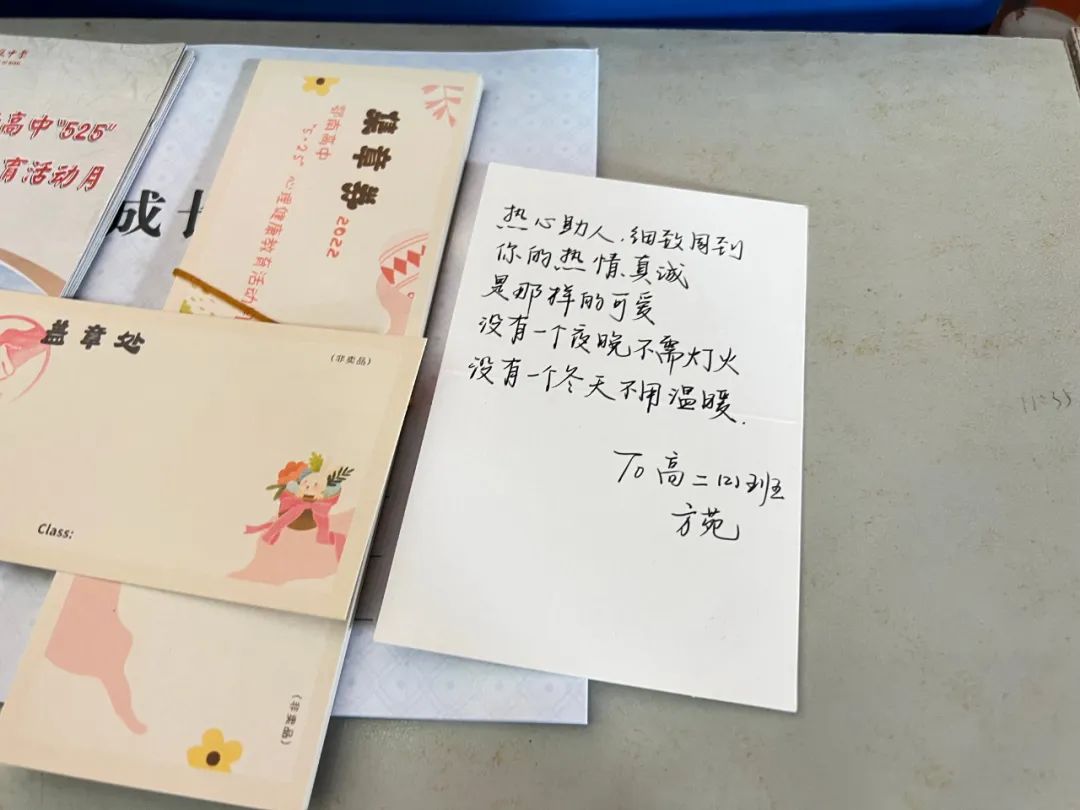 高中"525"
育活动月
成长
集章券
2022
鄂南高中
"5·25"心理健康教育活动
盖章处
(非卖品)
Class:
(非卖品)
热心助人,细致周到
你的热情真诚
是那样的可爱
没有一个夜晚不需灯火
没有一个冬天不用温暖.
To 高二(2)班
方苑
11:55